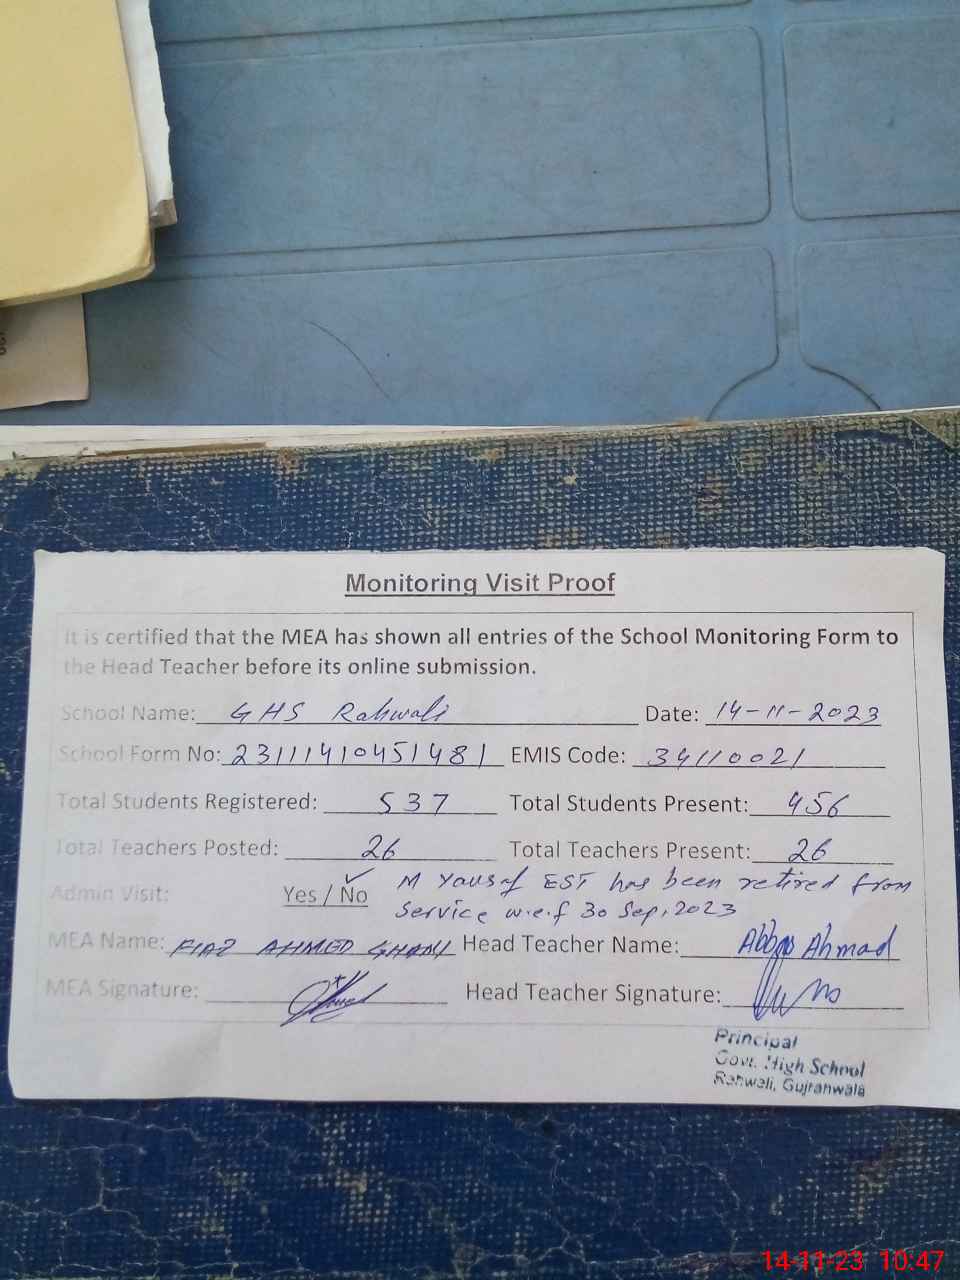 Monitoring Visit Proof
It is certified that the MEA has shown all entries of the School Monitoring Form to
the Head Teacher before its online submission.
School Name: GHS Rahwali Date: 14-11-2023
School Form No: 23111410451481 EMIS Code: 34110021
Total Students Registered: 537 Total Students Present: 456
Total Teachers Posted: 26 Total Teachers Present: 26
Admin Visit: Yes / No ✓ M Yousaf EST has been retired from
Service w.e.f 30 Sep, 2023
MEA Name: FIAZ AHMED GHANI Head Teacher Name: Abbas Ahmad
MEA Signature: Head Teacher Signature:
Principal
Govt. High School
Rahwali, Gujranwala
14-11-23 10:47